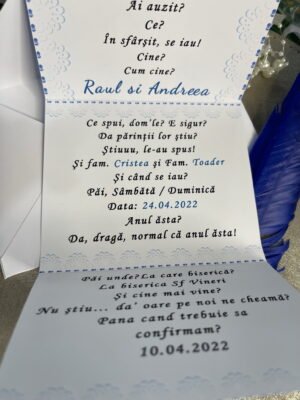 Ai auzit?
Ce?
În sfârșit, se iau!
Cine?
Cum cine?
Raul si Andreea
Ce spui, dom'le? E sigur?
Da părinții lor știu?
Știuuu, le-au spus!
Și fam. Cristea și Fam. Toader
Și când se iau?
Păi, Sâmbătă / Duminică
Data: 24.04.2022
Anul ăsta?
Da, dragă, normal că anul ăsta!
Păi unde? La care biserică?
La biserica Sf Vineri
Și cine mai vine?
Nu știu... da' oare pe noi ne cheamă?
Pana cand trebuie sa
confirmam?
10.04.2022